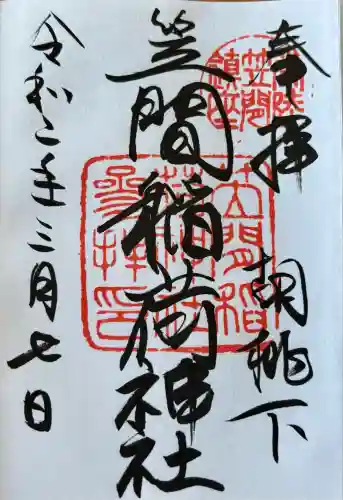 奉拝
胡桃下
笠間稲荷神社
令和二年三月七日
笠間
鎮座